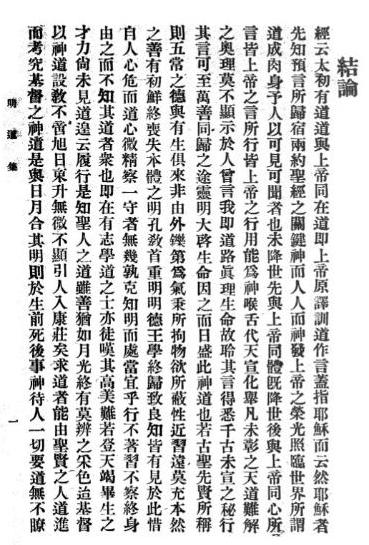 結論
經云太初有道道與上帝同在道卽上帝原譯訓道作言蓋指耶穌而云然耶穌者
先知預言所歸宿兩約聖經之關鍵神而人人而神發上帝之榮光照臨世界所謂
道成肉身予人以可見可聞者也未降世先與上帝同體旣降世後與上帝同心所
言皆上帝之言所行皆上帝之行用能爲神喉舌代天宣化舉凡未彰之天道難解
之奧理莫不顯示於人曾言我卽道路眞理生命故聆其言得悉千古未宣之秘行
其言可至萬善同歸之途靈明大啓生命因之而日盛此神道也若古聖先賢所稱
則五常之德與有生俱來非由外鑠第爲氣秉所拘物欲所蔽性近習遠莫充本然
之善有初鮮終喪失本體之明孔敎首重明明德王學終歸致良知皆有見於此惜
自人心危而道心微精察一守者無幾孰克知明而處當宜乎行不著習不察終身
由之而不知其道者衆也卽在有志學道之士亦徒嘆其高美難若登天竭畢生之
才力尙未見道遑云履行是知聖人之道雖善猶如月光終有莫辨之采色迨基督
以神道設敎不啻旭日東升無微不顯引人入康莊矣求道者能由聖賢之人道進
而考究基督之神道是與日月合其明則於生前死後事神待人一切要道無不瞭
明道集
一